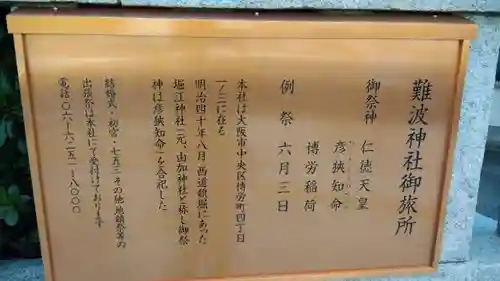 難波神社御旅所
御祭神　仁徳天皇
彦狹知命
博労稲荷
例祭　六月三日
本社は大阪市中央区博労町四丁目
一ノ三に在る
明治四十年八月西道頓堀にあった
堀江神社(元、由加神社と称し御祭
神は彦狹知命)を合祀した
結婚式・初宮・七五三・その他地鎮祭等の
出張祭は本社にて受付けております
電話〇六ー六二五一ー八〇〇〇